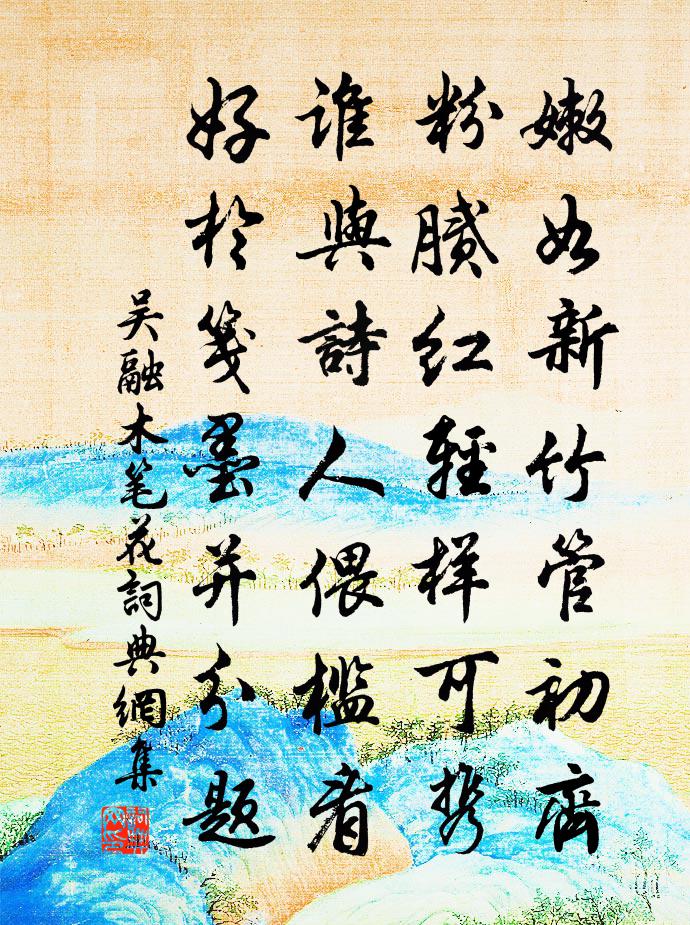 嫩如新竹管初齊
粉膩紅輕样可携
誰與詩人偎檻看
好於箋墨并分題
吴融木笔花詞典網集